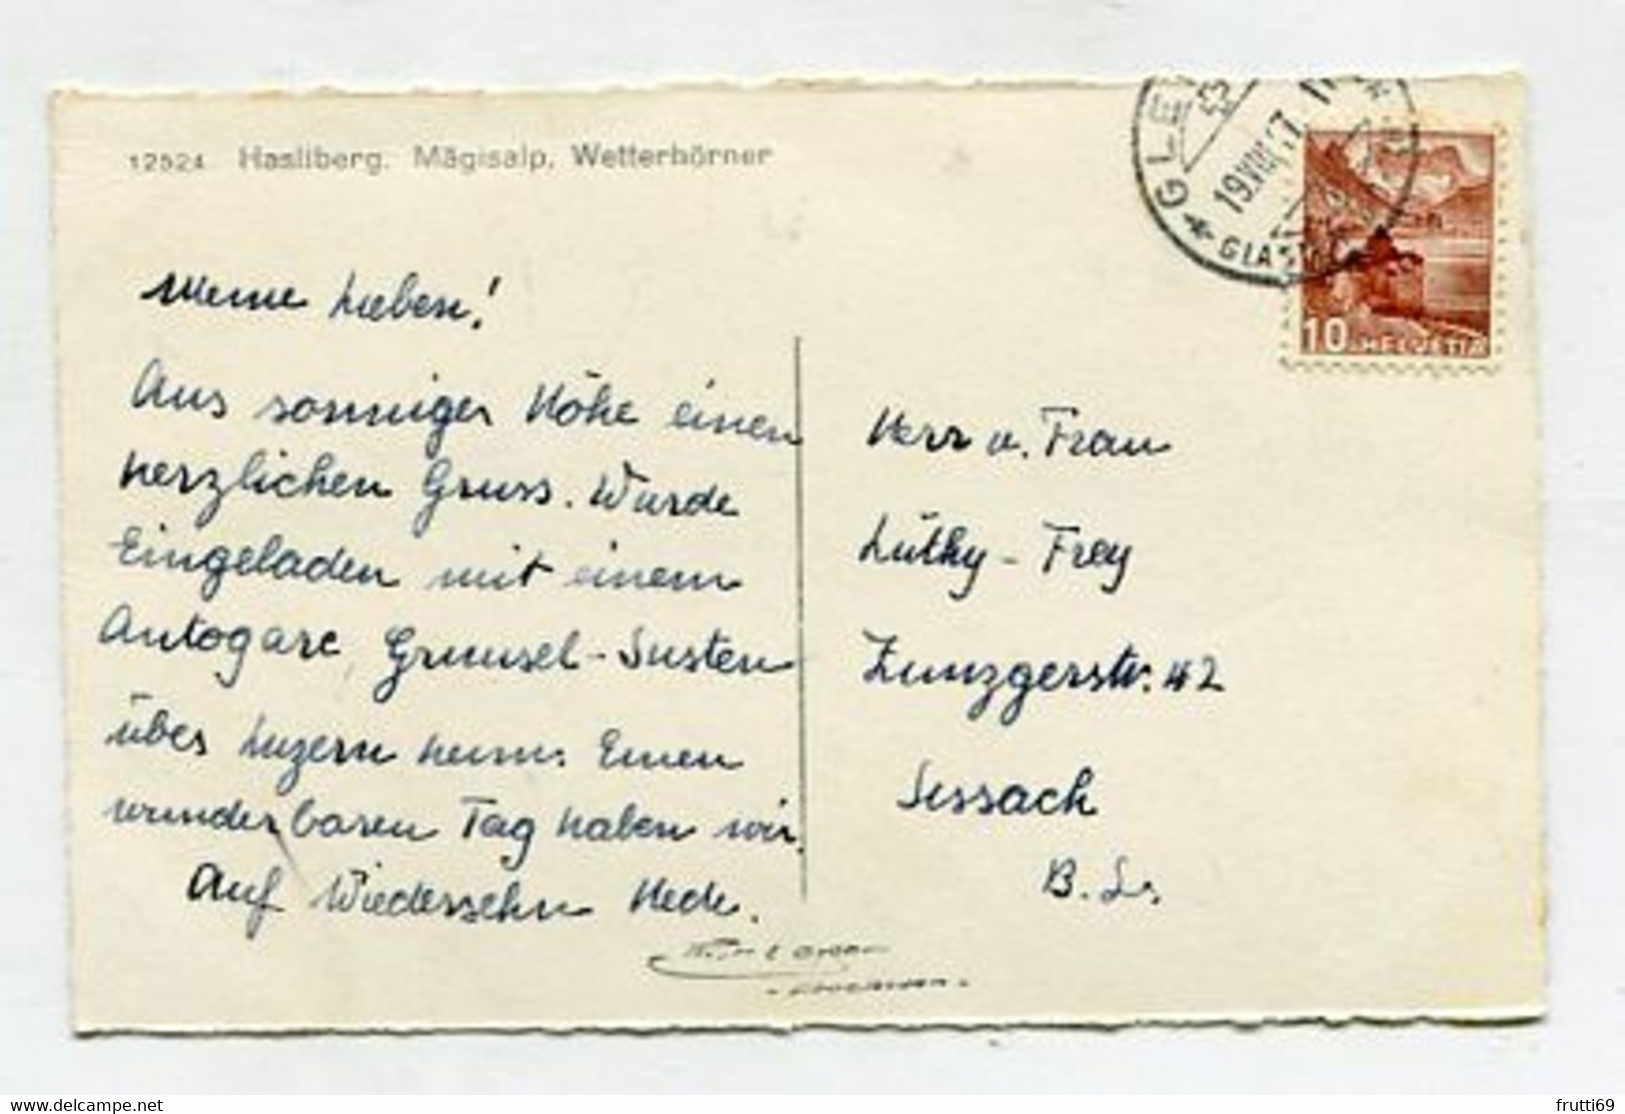 12524 Hasliberg. Mägisalp, Wetterhörner
Meine Lieben!
Aus sonniger Höhe einen
herzlichen Gruss. Wurde
Eingeladen mit einem
Autogare, Grimsel-Susten
über Luzern heim. Einen
wunderbaren Tag haben wir.
Auf Wiedersehn Hedi.
19.VIII.47
10 HELVETIA
Herr u. Frau
Lüthy-Frey
Zunzgerstr. 42
Sissach
delcampe.net
frutti69